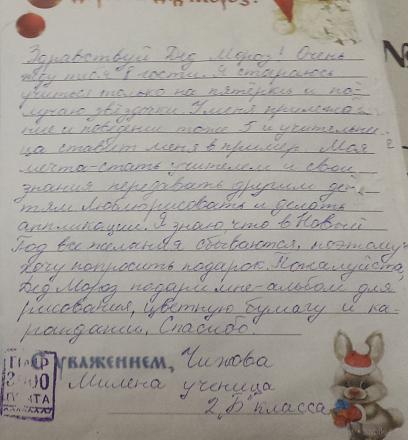 Здравствуй Дед Мороз! Очень
жду тебя в гости. Я стараюсь
учиться только на пятёрки и по-
лучаю звёздочки. У меня прилежа-
ние и поведение тоже 5 и учительни-
ца ставит меня в пример. Моя
мечта-стать учителем и свои
знания передавать другим де-
тям. Люблю рисовать и делать
аппликации. Я знаю, что в Новый
Год все желания сбываются, поэтому
хочу попросить подарок. Пожалуйста,
Дед Мороз подари мне-альбом для
рисования, цветную бумагу и ка-
рандаши. Спасибо.
С уважением, Чижова
Милена ученица
2 „Б" класса